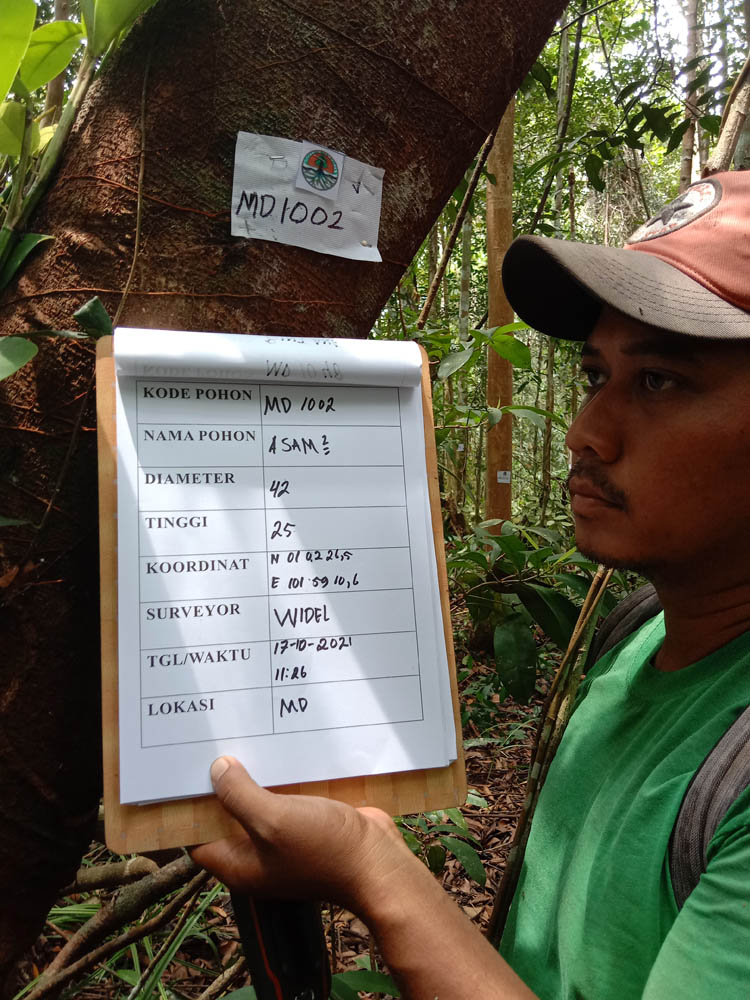 MD1002
KODE POHON MD 1002
NAMA POHON ASAM²
DIAMETER 42
TINGGI 25
KOORDINAT N 01 02 26,5
E 101:59 10,6
SURVEYOR WIDEL
TGL/WAKTU 17-10-2021
11:26
LOKASI MD